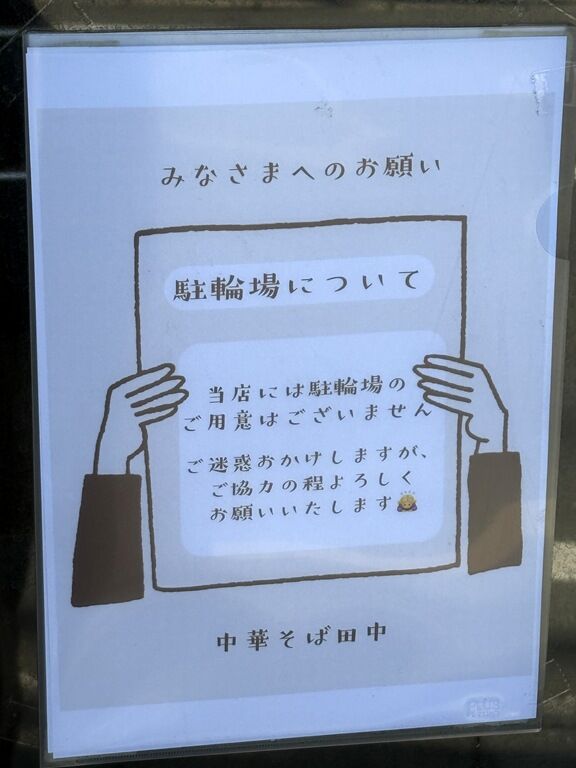 みなさまへのお願い
駐輪場について
当店には駐輪場の
ご用意はございません
ご迷惑おかけしますが、
ご協力の程よろしく
お願いいたします🙇
中華そば田中